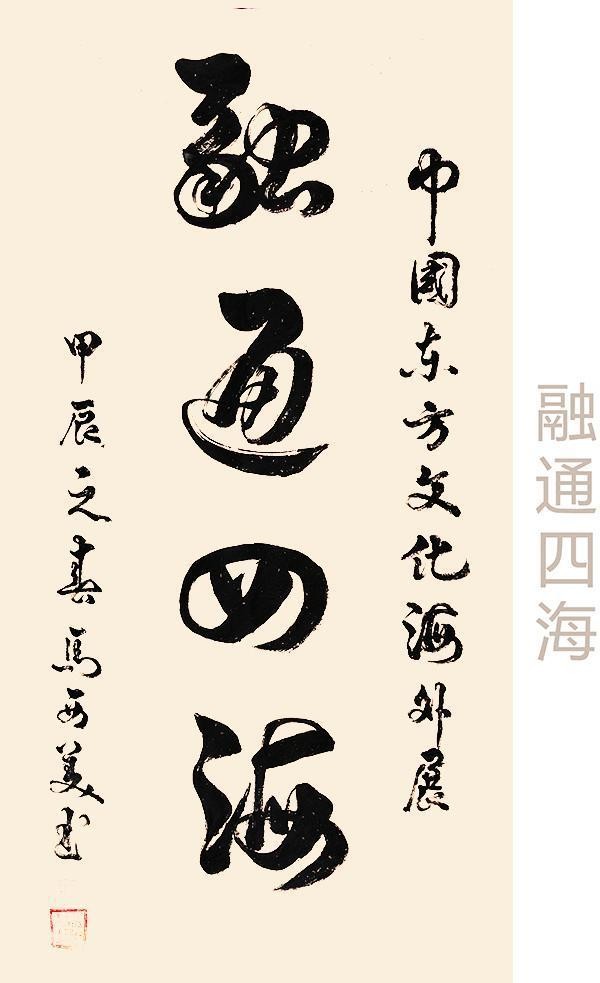 中國东方文化海外展
融通四海
甲辰之春馬西美书
融通四海